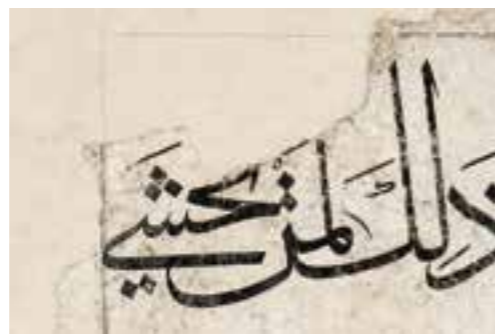 ذلك لمن خشي